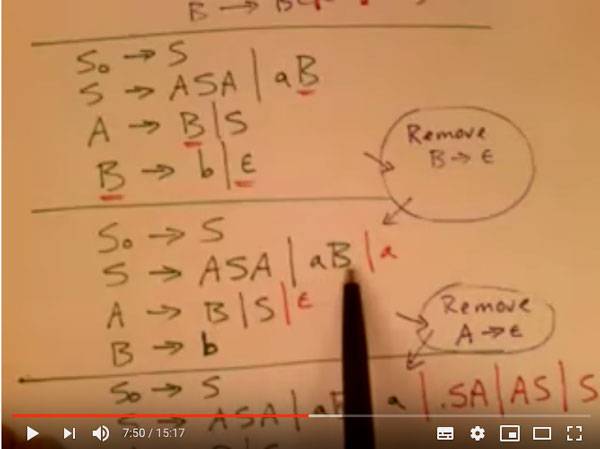 B →
S₀ → S
S → ASA | aB
A → B | S
B → b | ε
Remove
B → ε
S₀ → S
S → ASA | aB | a
A → B | S | ε
B → b
Remove
A → ε
S₀ → S
S → ASA | aB | a | SA | AS | S
7:50 / 15:17